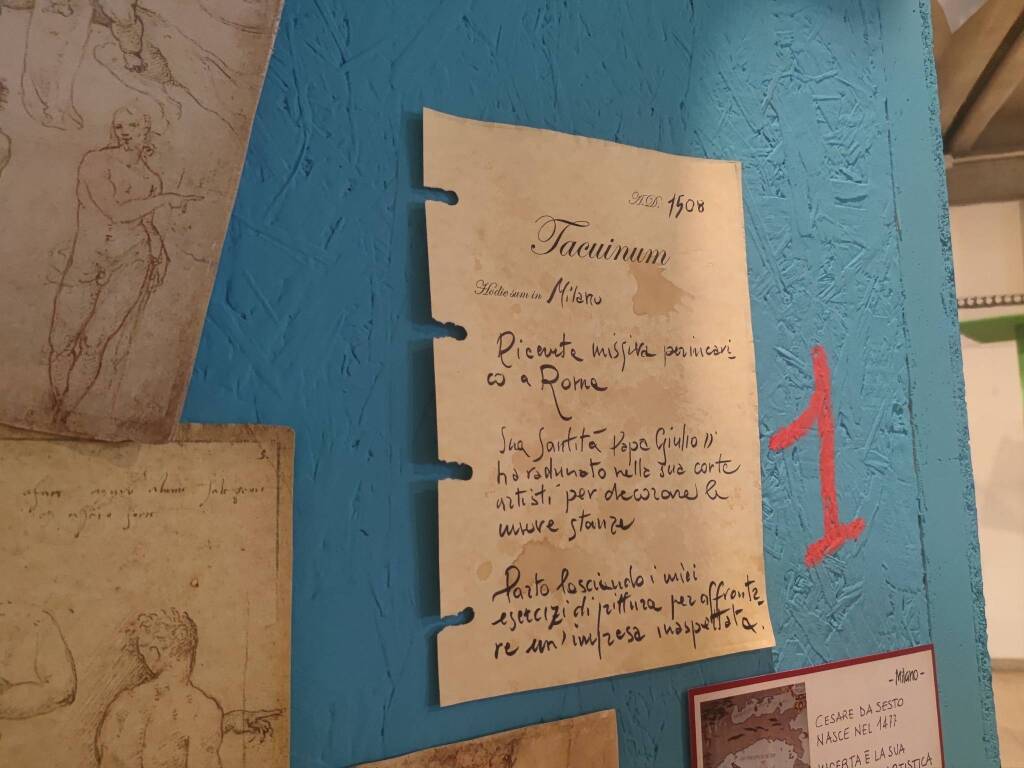 A.D. 1508
Tacuinum
Hodie sum in Milano
Ricevuta missiva per incari
co a Roma
Sua Santità Papa Giulio II
ha radunato nella sua corte
artisti per decorare le
nuove stanze
Parto lasciando i miei
esercizi di pittura per affronta-
re un'impresa inaspettata.
1
- MILANO -
CESARE DA SESTO
NASCE NEL 1477
INCERTA È LA SUA